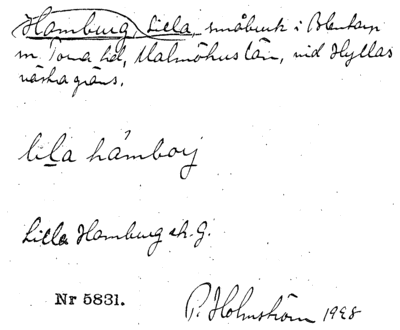 Hamburg, Lilla, småbruk i Blentarp
sn Torna hd, Malmöhus län, vid Hyllas
västra gräns.
lila hamborj
Lilla Hamburg ek. G.
Nr 5831.
P. Holmström 1928